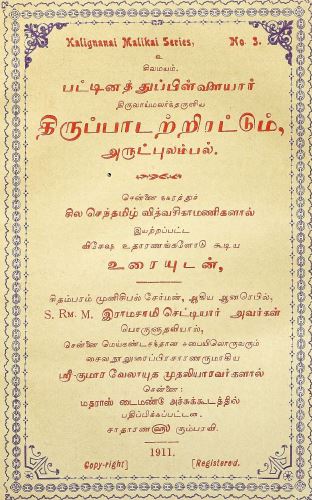 Kalignanai Malikai Series, No. 3.
உ
சிவமயம்.
பட்டினத்துப்பிள்ளையார்
திருவாய்மலர்ந்தருளிய
திருப்பாடற்றிரட்டும்,
அருட்புலம்பல்.
சென்னை நகரத்துச்
சில செந்தமிழ் வித்வசிகாமணிகளால்
இயற்றப்பட்ட
விசேஷ உதாரணங்களோடு கூடிய
உரையுடன்,
சிதம்பரம் முனிசிபல் சேர்மன், ஆகிய ஆனரெபில்,
S. RM. M. இராமசாமி செட்டியார் அவர்கள்
பொருளுதவியால்,
சென்னை மெய்கண்டசந்தான சபையிலொருவரும்
சைவநூலுரைப்பிரசாரணருமாகிய
ஸ்ரீ-குமார வேலாயுத முதலியாரவர்களால்
சென்னை:
மதராஸ் டைமண்டு அச்சுக்கூடத்தில்
பதிப்பிக்கப்பட்டன.
சாதாரண௵ கும்பரவி.
1911.
Copy-right] [Registered.